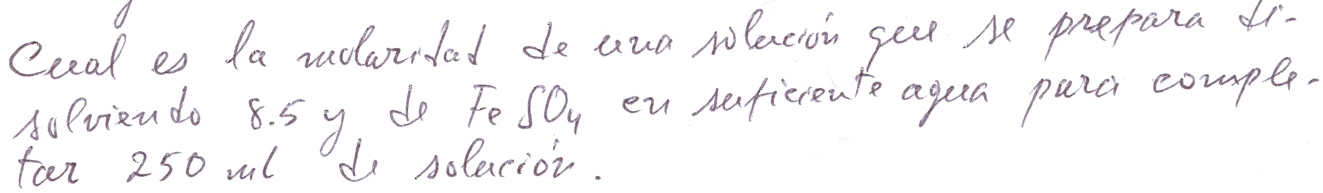 Cual es la molaridad de una solución que se prepara di-
solviendo 8.5 g de FeSO4 en suficiente agua para comple-
tar 250 ml de solución.